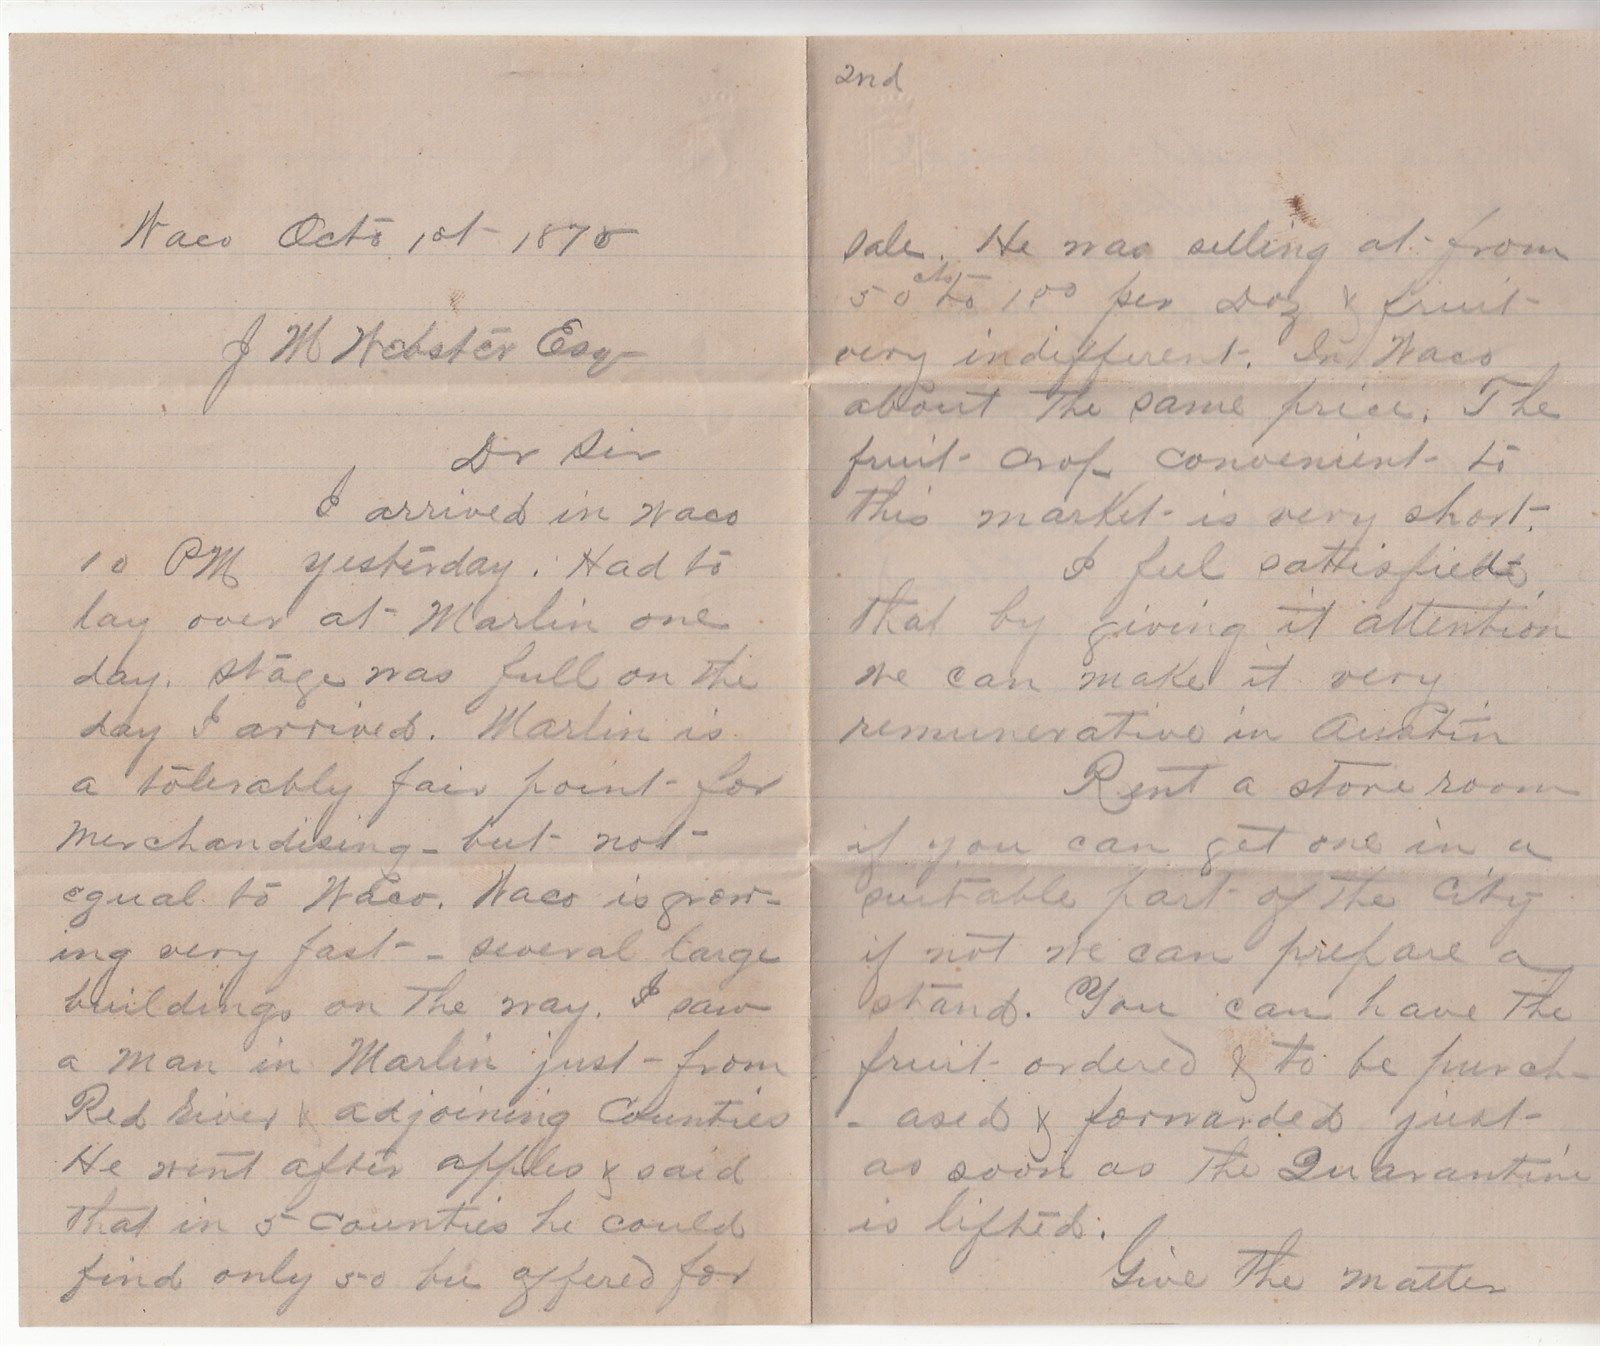 Waco Octo 1st 1870
J M Webster Esq
Dr Sir
I arrived in Waco
10 PM yesterday. Had to
lay over at Marlin one
day. Stage was full on the
day I arrived. Marlin is
a tolerably fair point for
merchandising - but not
equal to Waco. Waco is grow-
ing very fast - several large
buildings on the way. I saw
a man in Marlin just from
Red River & adjoining Counties
He went after apples & said
that in 5 Counties he could
find only 50 bu offered for
2nd
sale. He was selling at from
50 cts to 1 00 per Doz & fruit
very indifferent. In Waco
about the same price. The
fruit crop convenient to
this market is very short.
I feel sattisfied
that by giving it attention
we can make it very
remunerative in Austin
Rent a store room
if you can get one in a
suitable part of the City
if not we can prepare a
stand. You can have the
fruit ordered & to be purch-
- ased & forwarded just
as soon as the Quarantine
is lifted.
Give the matter